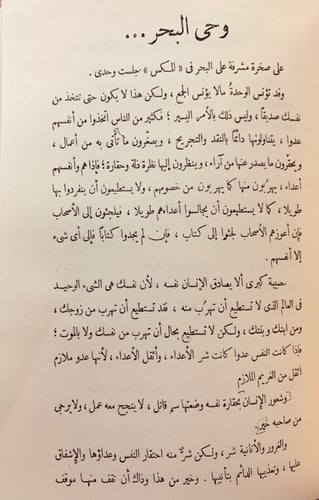 وحى البحر ...
على صخرة مشرفة على البحر فى « المكس » جلست وحدى .
وقد تؤنس الوحدةُ مالا يؤنس الجمع ، ولكن هذا لا يكون حتى تتخذ من
نفسك صديقاً ، وليس ذلك بالأمر اليسير ؛ فكثير من الناس اتخذوا من أنفسهم
عدوا ، يتناولونها دائماً بالنقد والتجريح ، ويصغّرون ما تأتى به من أعمال ،
ويحقّرون ما يصدر عنها من آراء ، وينظرون إليها نظرة ذلة وحقارة ؛ فإذا هم وأنفسهم
أعداء ، يهربون منها كما يهربون من خصومهم ، ولا يستطيعون أن ينفردوا بها
طويلا ، كما لا يستطيعون أن يجالسوا أعداءهم طويلا ، فيلجئون إلى الأصحاب
فإن أعوزهم الأصحاب لجئوا إلى كتاب ، فإن لم يجدوا كتاباً فإلى أى شىء
إلا أنفسهم .
مصيبة كبرى ألا يصادق الإنسان نفسه ، لأن نفسك هى الشىء الوحيد
فى العالم الذى لا تستطيع أن تهرُب منه ، فقد تستطيع أن تهرب من زوجك ،
ومن ابنك وبنتك ، ولكن لا تستطيع بحال أن تهرب من نفسك ولا بالموت ؛
فإذا كانت النفس عدوا كانت شر الأعداء ، وأثقل الأعداء ، لأنها عدو ملازم
أثقل من الغريم الملازم
وشعور الإنسان بحقارة نفسه وضعتها سم قاتل ، لا ينجح معه عمل ، ولا يرجى
من صاحبه خير
والغرور والأنانية شر ، ولكن شرٌّ منه احتقار النفس وعداؤها والإشفاق
عليها ، وتعذيبها الدائم بتأنيبها . وخير من هذا وذاك أن تقف منها موقف